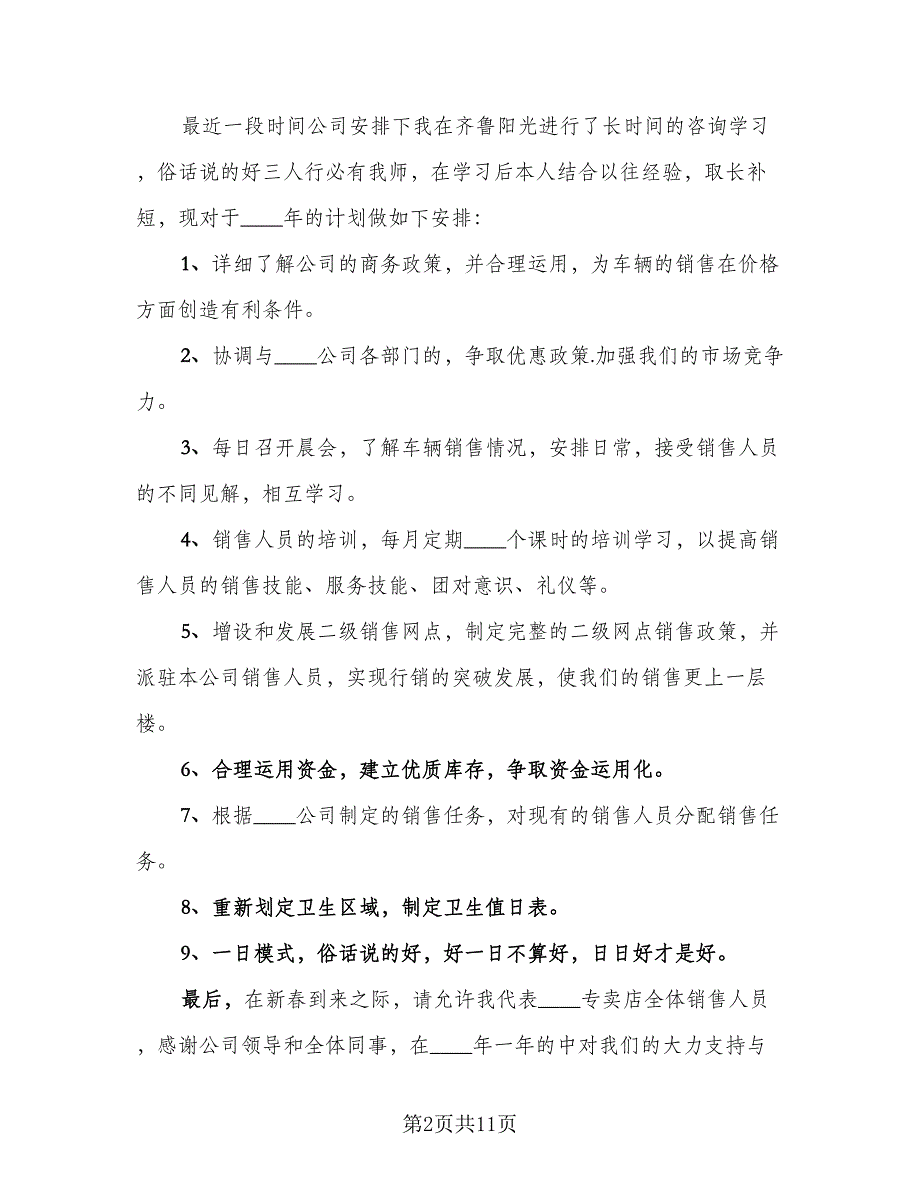 最近一段时间公司安排下我在齐鲁阳光进行了长时间的咨询学习
，俗话说的好三人行必有我师，在学习后本人结合以往经验，取长补
短，现对于____年的计划做如下安排：
1、详细了解公司的商务政策，并合理运用，为车辆的销售在价格
方面创造有利条件。
2、协调与____公司各部门的，争取优惠政策.加强我们的市场竞争
力。
3、每日召开晨会，了解车辆销售情况，安排日常，接受销售人员
的不同见解，相互学习。
4、销售人员的培训，每月定期____个课时的培训学习，以提高销
售人员的销售技能、服务技能、团对意识、礼仪等。
5、增设和发展二级销售网点，制定完整的二级网点销售政策，并
派驻本公司销售人员，实现行销的突破发展，使我们的销售更上一层
楼。
6、合理运用资金，建立优质库存，争取资金运用化。
7、根据____公司制定的销售任务，对现有的销售人员分配销售任
务。
8、重新划定卫生区域，制定卫生值日表。
9、一日模式，俗话说的好，好一日不算好，日日好才是好。
最后，在新春到来之际，请允许我代表____专卖店全体销售人员
，感谢公司领导和全体同事，在____年一年的中对我们的大力支持与
第2页共11页